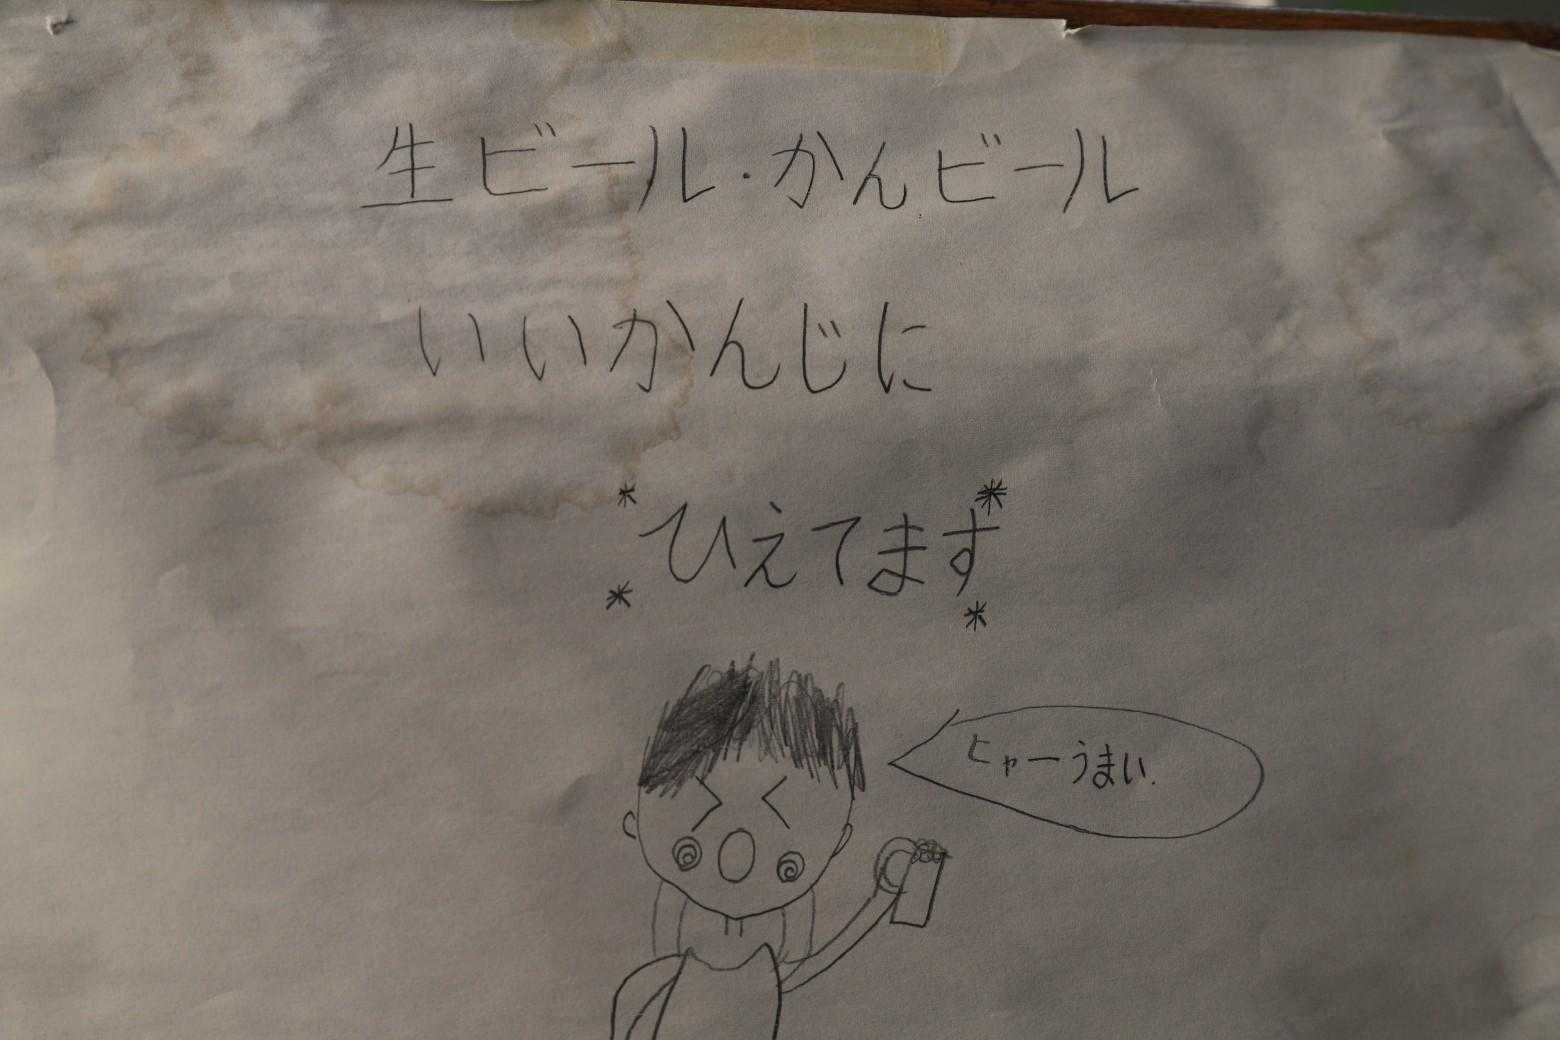 生ビール・かんビール
いいかんじに
*ひえてます*
ヒャーうまい.